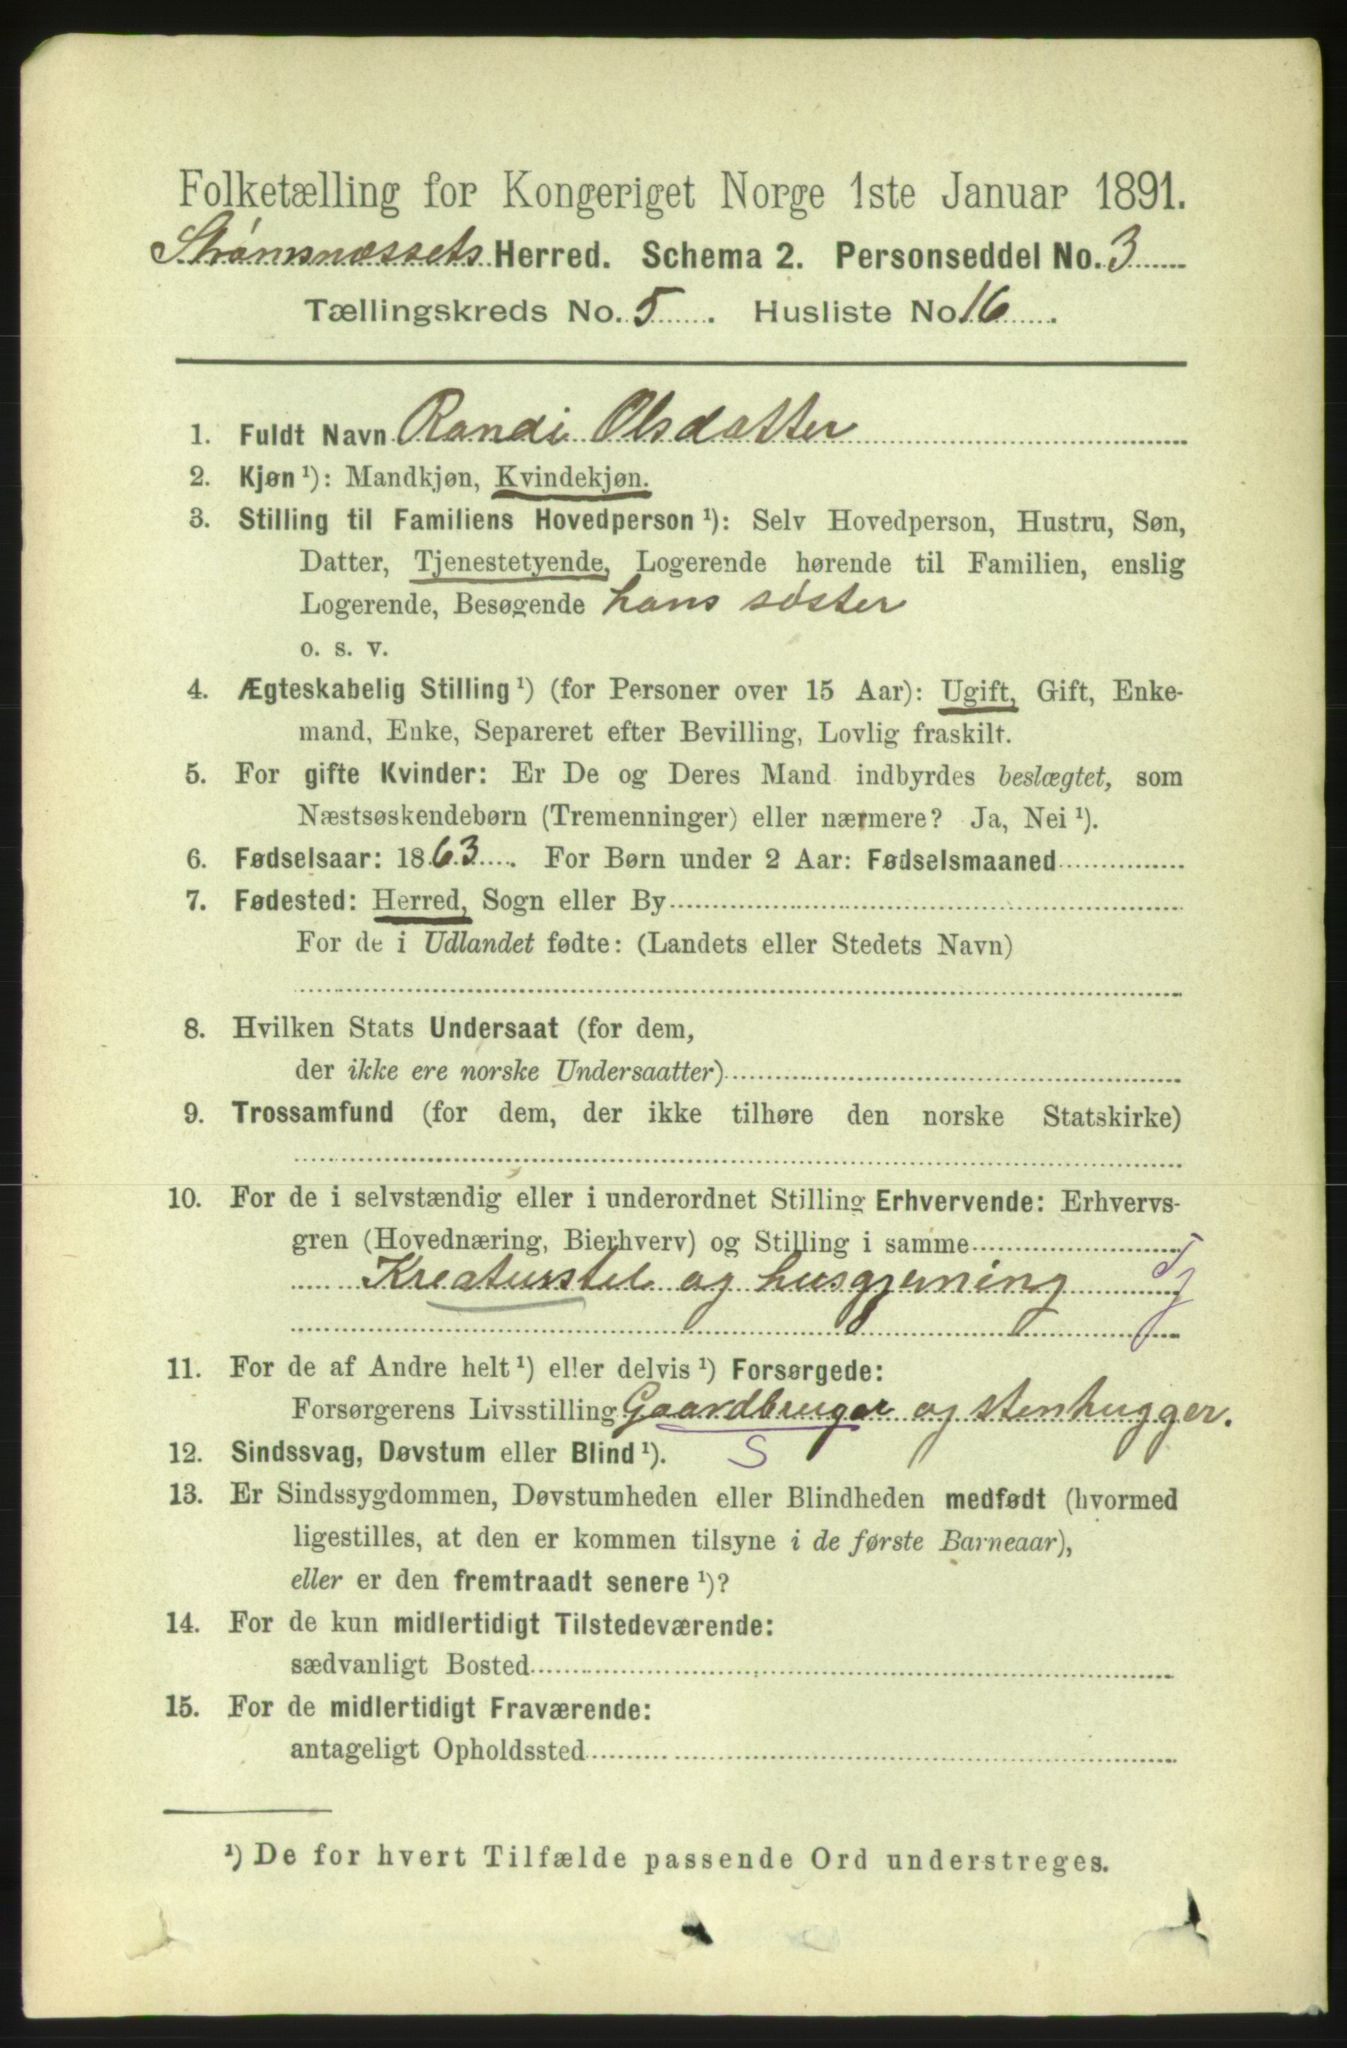 Folketælling for Kongeriget Norge 1ste Januar 1891.
Strømsnæssets Herred. Schema 2. Personseddel No. 3
Tællingskreds No. 5. Husliste No 16.
1. Fuldt Navn Randi Olsdatter
2. Kjøn ¹): Mandkjøn, Kvindekjøn.
3. Stilling til Familiens Hovedperson ¹): Selv Hovedperson, Hustru, Søn,
Datter, Tjenestetyende, Logerende hørende til Familien, enslig
Logerende, Besøgende hans søster
o. s. v.
4. Ægteskabelig Stilling ¹) (for Personer over 15 Aar): Ugift, Gift, Enke-
mand, Enke, Separeret efter Bevilling, Lovlig fraskilt.
5. For gifte Kvinder: Er De og Deres Mand indbyrdes beslægtet, som
Næstsøskendebørn (Tremenninger) eller nærmere? Ja, Nei ¹).
6. Fødselsaar: 1863. For Børn under 2 Aar: Fødselsmaaned
7. Fødested: Herred, Sogn eller By
For de i Udlandet fødte: (Landets eller Stedets Navn)
8. Hvilken Stats Undersaat (for dem,
der ikke ere norske Undersaatter)
9. Trossamfund (for dem, der ikke tilhøre den norske Statskirke)
10. For de i selvstændig eller i underordnet Stilling Erhvervende: Erhvervs-
gren (Hovednæring, Bierhverv) og Stilling i samme
Kreaturstel og husgjerning Tj
11. For de af Andre helt ¹) eller delvis ¹) Forsørgede:
Forsørgerens Livsstilling Gaardbruger og stenhugger.
12. Sindssvag, Døvstum eller Blind ¹). S
13. Er Sindssygdommen, Døvstumheden eller Blindheden medfødt (hvormed
ligestilles, at den er kommen tilsyne i de første Barneaar),
eller er den fremtraadt senere ¹)?
14. For de kun midlertidigt Tilstedeværende:
sædvanligt Bosted
15. For de midlertidigt Fraværende:
antageligt Opholdssted
¹) De for hvert Tilfælde passende Ord understreges.